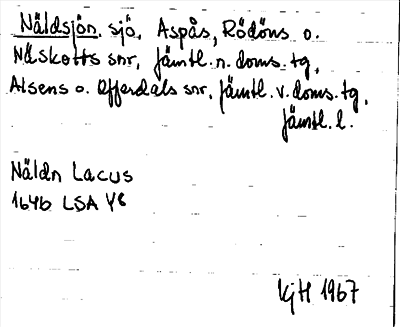 Näldsjön. sjö, Aspås, Rödöns o.
Näskotts snr, Jämtl. n. doms. tg,
Alsens o. Offerdals snr, Jämtl. v. doms. tg,
Jämtl. l.
Näldn Lacus
1646 LSA Y6
KjH 1967